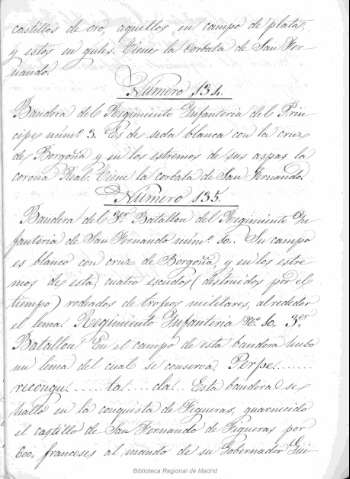 castillos de oro, aquellos en campo de plata,
y estos en gules. Tiene la corbata de San Fer-
nando.
Número 134.
Bandera del Regimiento Infantería del Prin-
cipe num.º 3. Es de seda blanca con la cruz
de Borgoña y en los estremos de sus aspas la
corona Real. Tiene la corbata de San Fernando.
Número 135.
Bandera del 3.er Batallon del Regimiento In-
fantería de San Fernando num.º 10. Su campo
es blanco con cruz de Borgoña, y en los estre-
mos de esta, cuatro escudos (destruidos por el
tiempo) rodeados de trofeos militares, alrededor
el lema Regimiento Infantería N.º 10. 3.er
Batallon. En el campo de esta bandera hubo
un lema del cual se conserva Porfse.......
reconqui......tal....dal. Esta bandera se
halló en la conquista de Figueras, guarnecido
el castillo de San Fernando de Figueras por
600 franceses al mando de su Gobernador
Biblioteca Regional de Madrid